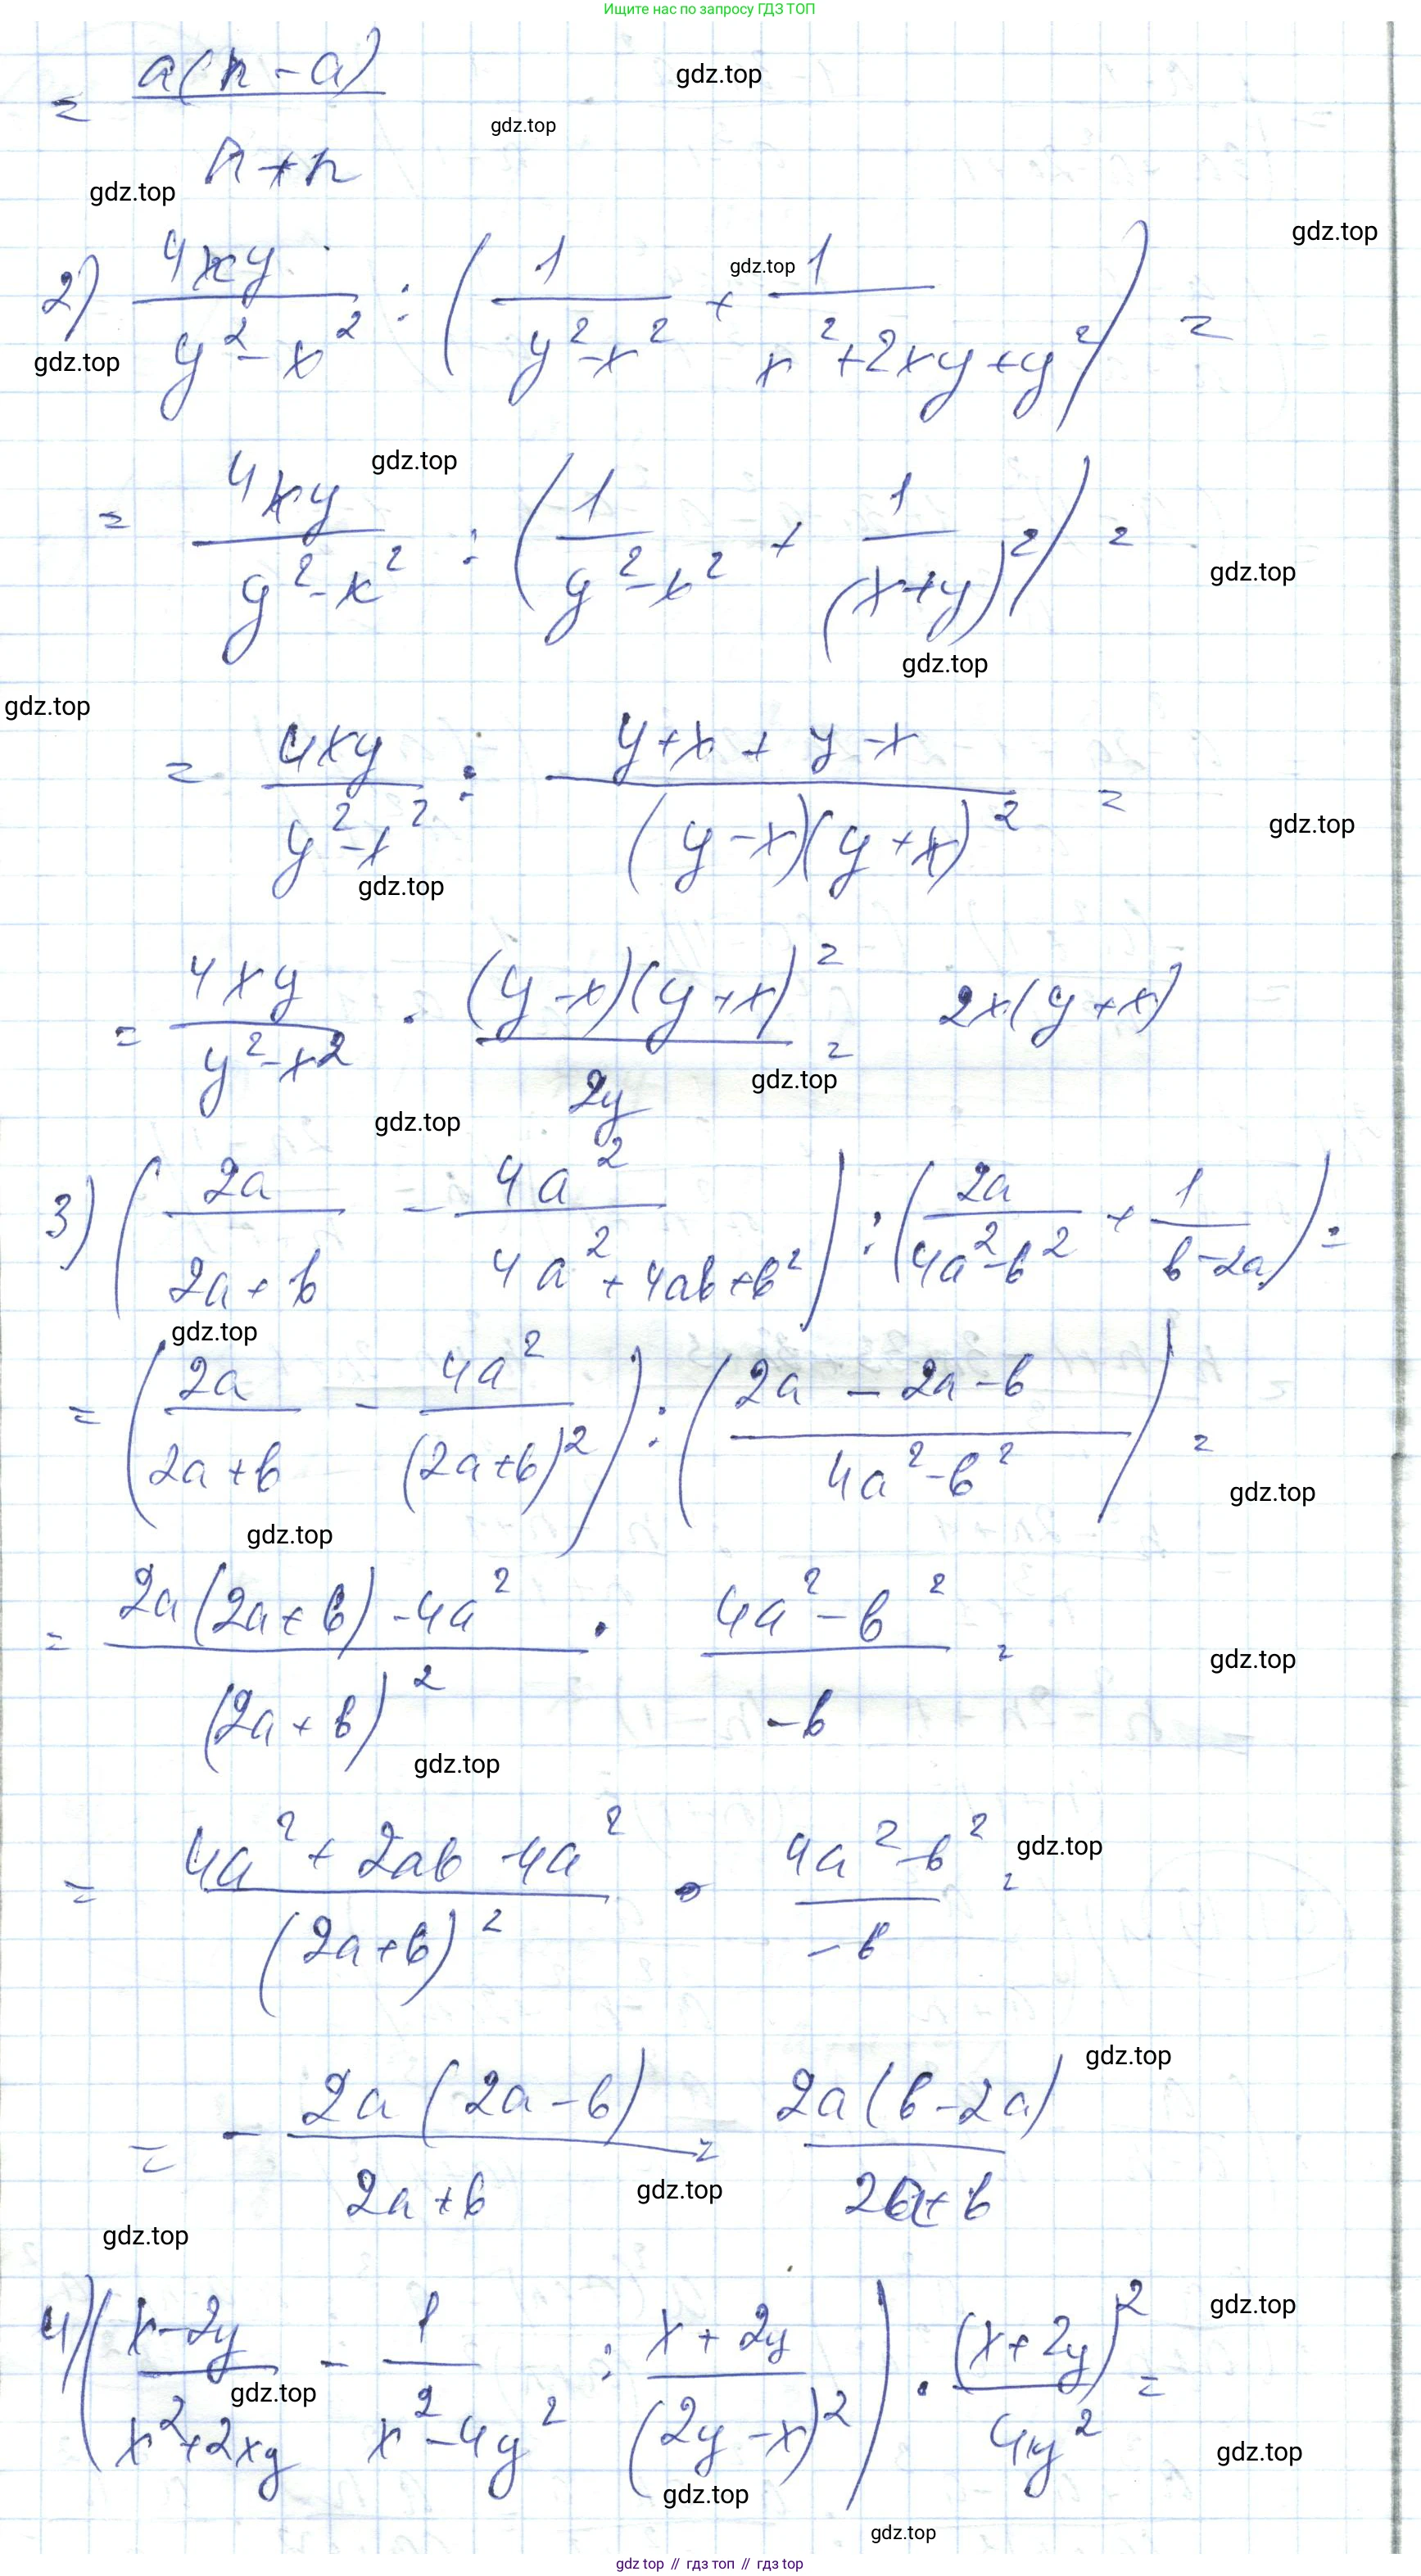 Ищите нас по запросу ГДЗ ТОП
= a(n-a)/(n+n)
gdz.top
gdz.top
gdz.top
gdz.top
2) 4xy/(y²-x²) : (1/(y²-x²) + 1/(x²+2xy+y²)) =
gdz.top
gdz.top
gdz.top
= 4xy/(y²-x²) : (1/(y²-x²) + 1/(x+y)²) =
gdz.top
gdz.top
gdz.top
= 4xy/(y²-x²) : (y+x+y-x)/((y-x)(y+x)²) =
gdz.top
gdz.top
= 4xy/(y²-x²) · (y-x)(y+x)²/2y = 2x(y+x)
gdz.top
gdz.top
3) (2a/(2a+b) - 4a²/(4a²+4ab+b²)) : (2a/(4a²-b²) + 1/(b-2a)) =
gdz.top
= (2a/(2a+b) - 4a²/(2a+b)²) : ((2a-2a-b)/(4a²-b²)) =
gdz.top
gdz.top
= (2a(2a+b)-4a²)/(2a+b)² · (4a²-b²)/-b =
gdz.top
gdz.top
= (4a²+2ab-4a²)/(2a+b)² · (4a²-b²)/-b =
gdz.top
gdz.top
= - 2a(2a-b)/(2a+b) = 2a(b-2a)/(2a+b)
gdz.top
gdz.top
4) ((x-2y)/(x²+2xy) - 1/(x²-4y²) : (x+2y)/(2y-x)²) · (x+2y)²/4y² =
gdz.top
gdz.top
gdz.top
gdz.top
gdz.top
gdz top // гдз топ // gdz top